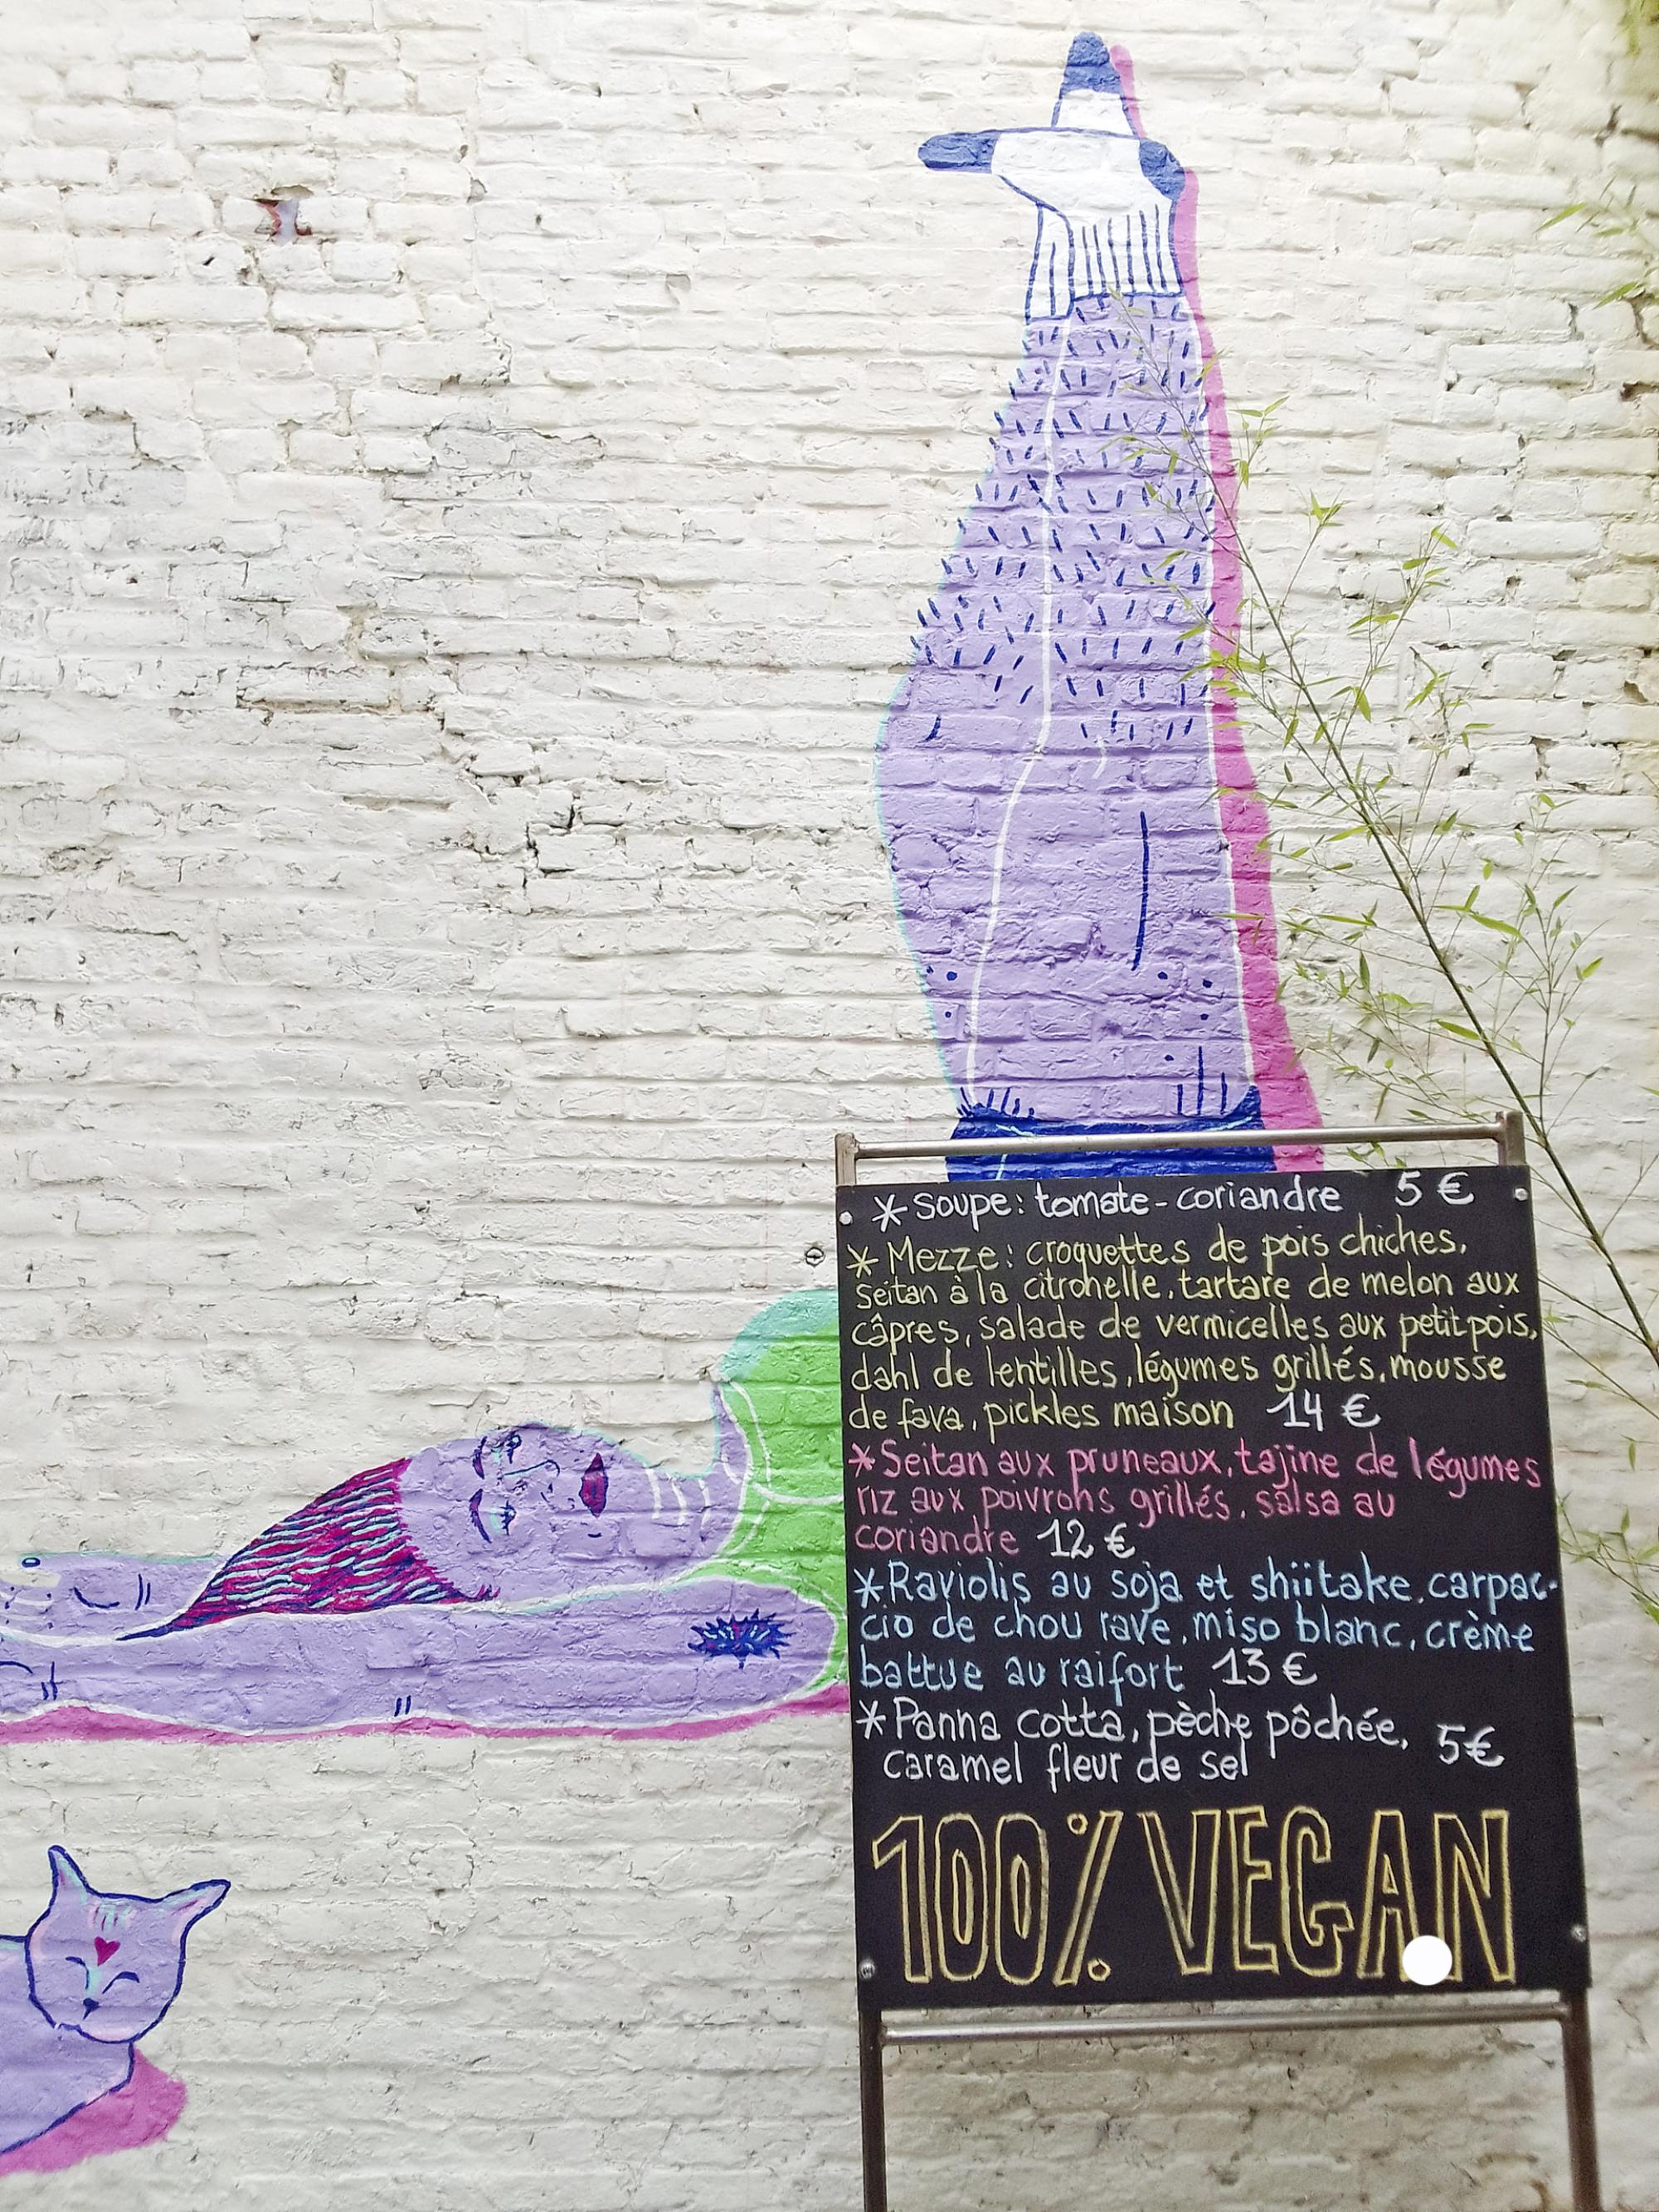 * Soupe: tomate-coriandre 5 €
* Mezze: croquettes de pois chiches,
seitan à la citronelle, tartare de melon aux
câpres, salade de vermicelles aux petit pois,
dahl de lentilles, légumes grillés, mousse
de fava, pickles maison 14 €
* Seitan aux pruneaux, tajine de légumes
riz aux poivrons grillés, salsa au
coriandre 12 €
* Raviolis au soja et shiitake, carpac-
cio de chou rave, miso blanc, crème
battue au raifort 13 €
* Panna cotta, pèche pôchée, 5€
caramel fleur de sel
100% VEGAN